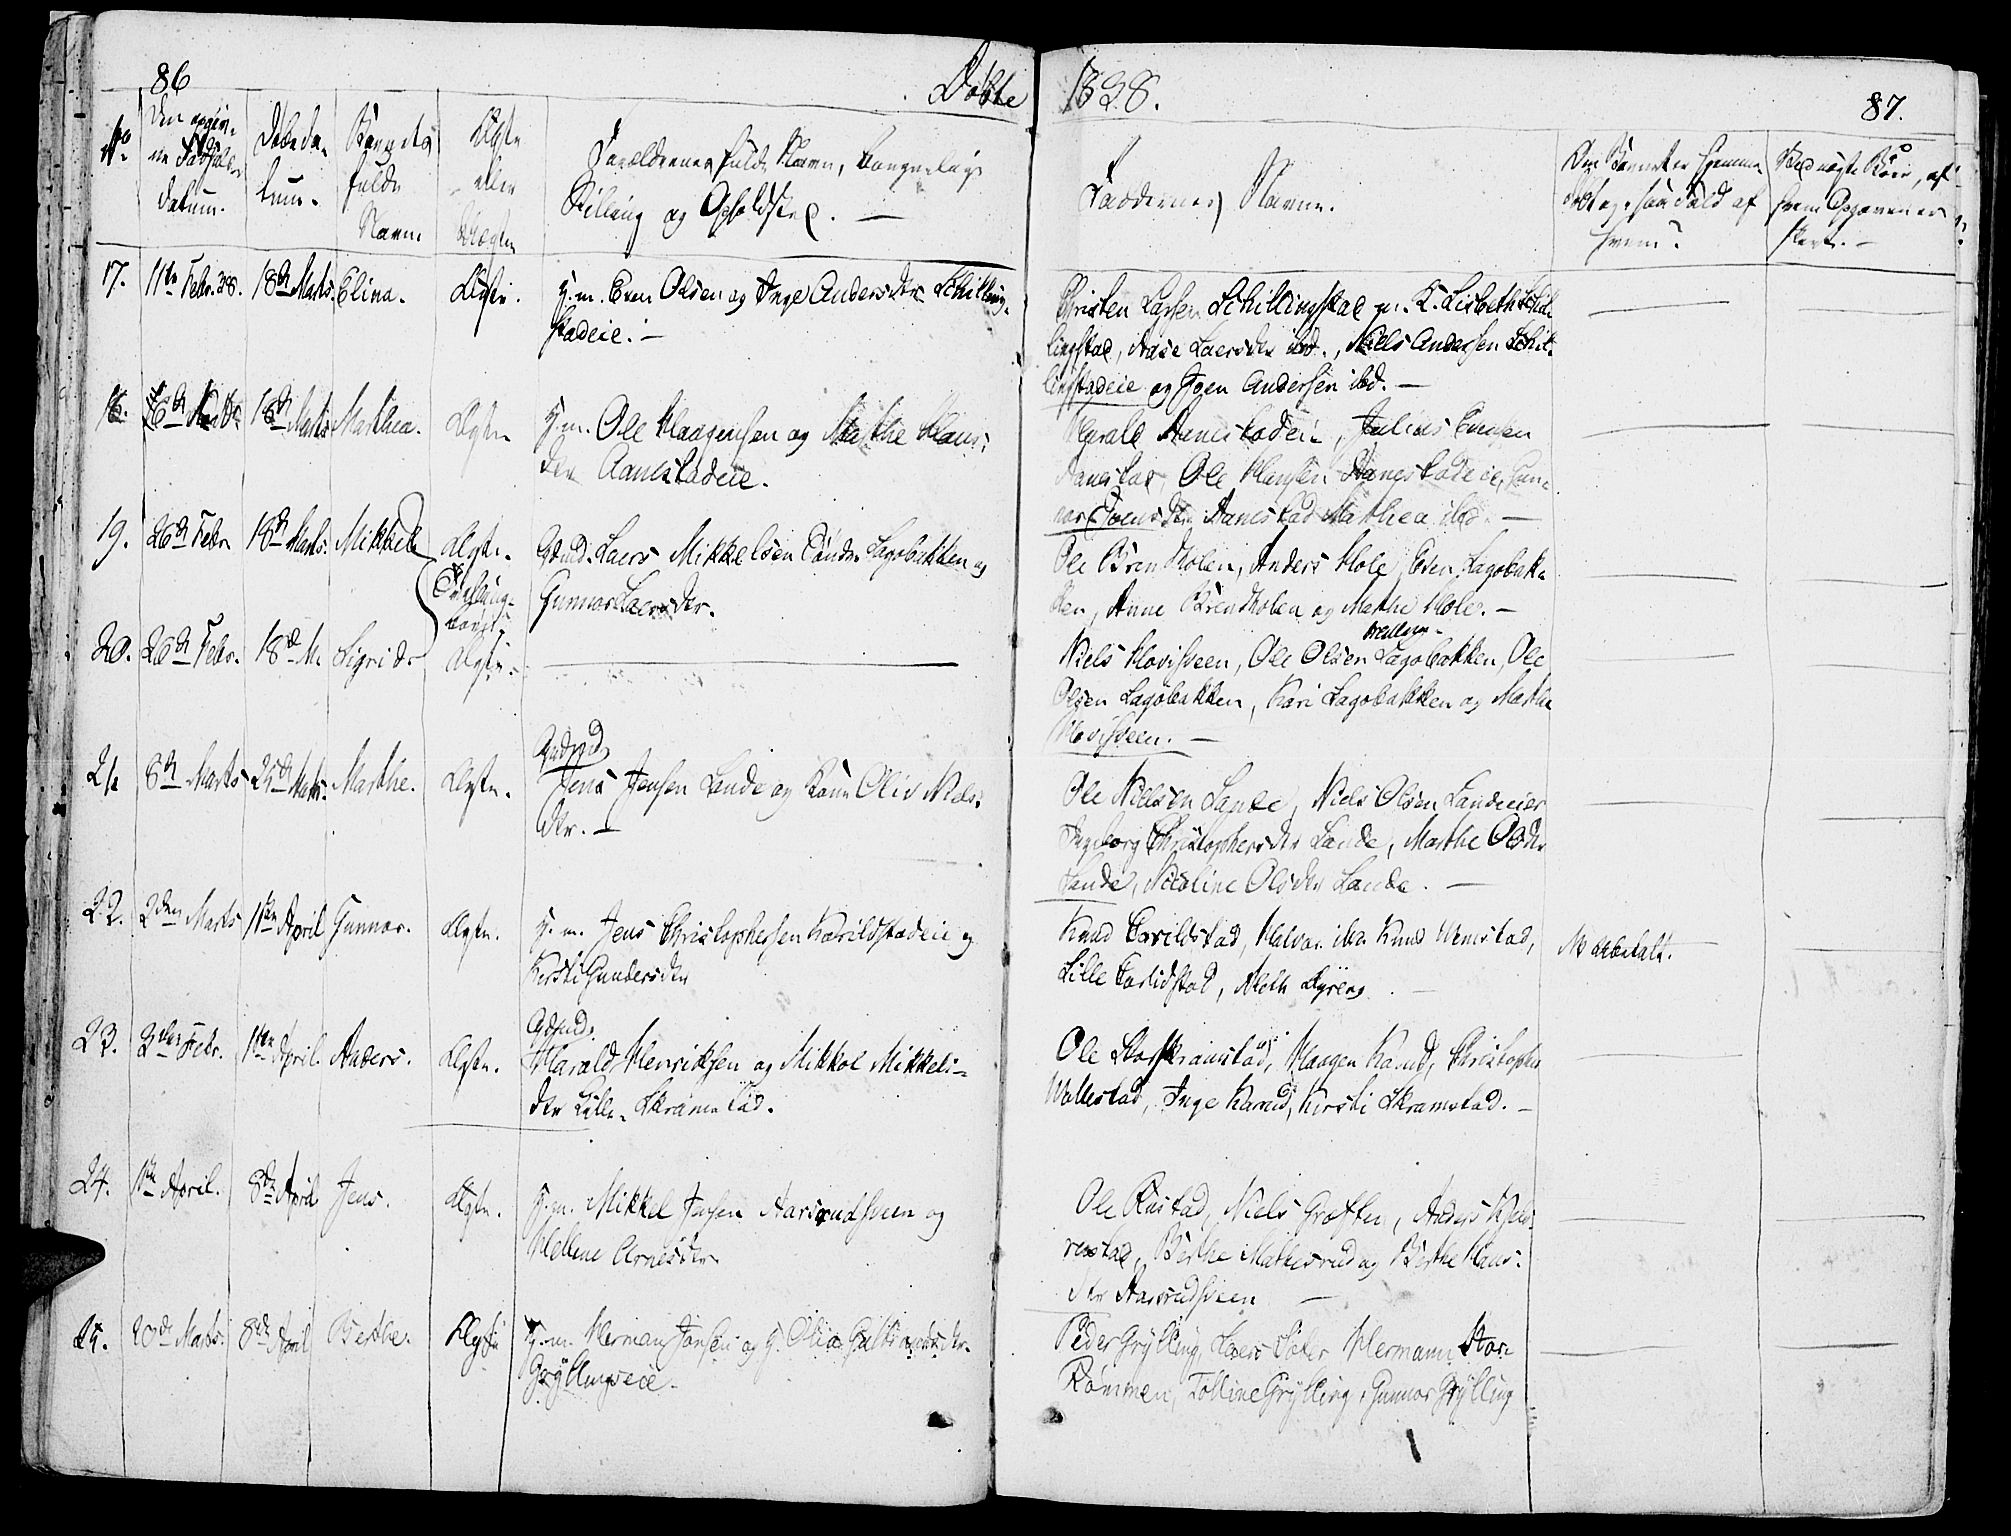 86
Døbte
1838.
87.
No.
Den angiv-
ne Fødsels-
datum.
Døbeda-
tum.
Barnets
fulde
Navn
Ægte
eller
Uægte
Forældrenes fulde Navn, borgerlige
Stilling og Opholdsted. —
Faddernes Navne.
Om Barnet er hjemme-
døbt og i saa Fald af
hvem?
Ved uægte Børn, af
hvem Opgaven er
skeet. —
17. 11te Febr. 38. 18de Marts. Elina. Ægte. H.m. Even Olsen og Inge Andersdtr Schilling-
stadeie. —
Christen Larsen Schillingstad og K. Lisbeth Schil-
lingstad, Aase Laersdtr ibd., Niels Andersen Schil-
lingstadeie og Iven Andersen ibd. —
18. 6te Marts 18de Marts Marthea. Ægte H.m. Ole Haagensen og Marthe Hans-
dtr Aanestadeie.
Harald Aanestadeie, Julius Evensen
Aanestad, Ole Hansen Aanestadeie, Gun-
nor Joensdtr Aanestad Mathea ibd. —
19. 26de Febr 18de Marts. Mikkel Ægte.
Tvilling-
børn.
Gdmd. Laers Mikkelsen Søndre Lagobakken og
Gunnor Laersdtr.
Ole Brenholen, Anders Hole, Even Lagobak-
ken, Anne Brenholen og Mathe Hole. —
20. 26de Febr. 18de M. Sigrid. Ægte.
mellem-
Niels Hovisveen, Ole Olsen Lagobakken, Ole
Olsen Lagobakken, Kari Lagobakken og Marthe
Hovisveen. —
21. 8de Marts 25de Marts. Marthe. Ægte.
Gdmd
Jens Jensen Lande og Kone Oliv Niels-
dtr. —
Ole Nielsen Lande, Niels Olsen Landeeier
Ingeborg Christophersdtr Lande, Marthe Olsdtr
Lande, Nicoline Olsdtr Lande. —
22. 2den Marts 1ste April Gunnor. Ægte. H.m. Jens Christophersen Karildstadeie og
Kersti Gundersdtr
Knud Carildstad, Halvor ibd. Knud Wemstad,
Lille Carildstad, Meth Dyreng. —
23. 3die Febr. 1ste April. Anders. Ægte.
Gdmd.
Harald Henriksen og Mikkol Mikkels-
dtr Lille-Skramstad.
Ole Skramstad, Haagen Karud, Christopher
Wollestad, Inge Karud, Kersti Skramstad. —
24. 1ste April. 8de April Jens. Ægte. H.m. Mikkel Jensen Aarsrudsveen og
Hellene Arnesdtr
Ole Rustad, Niels Grøften, Anders
Berthe Mathisrud og Berthe Hans-
dtr Aarsrudsveen —
25. 20de Marts. 8de April Berthe. Ægte H.m. Herman Jansen og H. Olia Gulbrandsdtr
Gryllingseie.
Peder Grylling, Laers Hermann Stor-
Rommen, Tolline Grylling, Gunnor Grylling